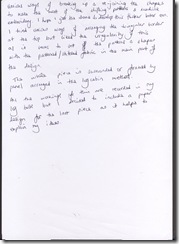 various ways of breaking up & re-joining the shapes
to make the most of the shifting patterns & machine
embroidery. I hope I get the chance to develop this further later on.
I tried various ways of arranging the triangular border
at the top but liked the irregularity of this
as it seems to the patterns & shapes
with the patterned / fabric in the main part of
the design.
The whole piece is surrounded or framed by
panels arranged in the log cabin method.
All the workings of these are recorded in my
log book but I decided to include a paper
design for the last piece as it helps to
explain my ideas.